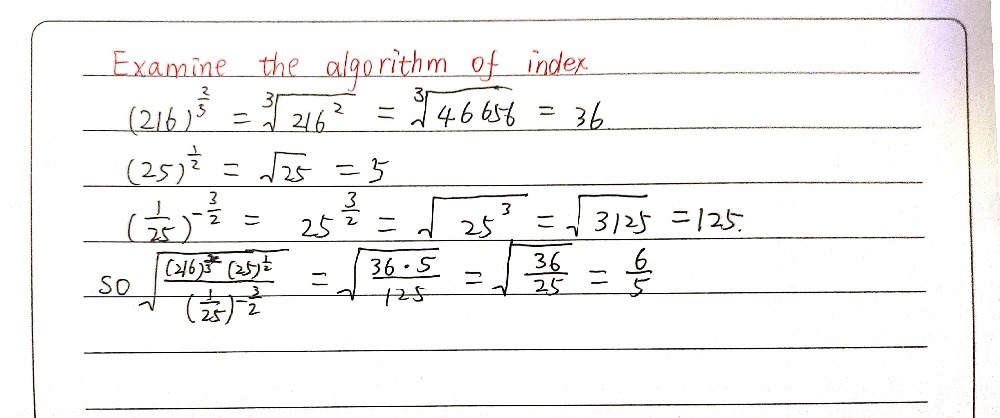 Examine the algorithm of index
(216)^{\frac{2}{3}} = \sqrt[3]{216^2} = \sqrt[3]{46656} = 36
(25)^{\frac{1}{2}} = \sqrt{25} = 5
(\frac{1}{25})^{-\frac{3}{2}} = 25^{\frac{3}{2}} = \sqrt{25^3} = \sqrt{3125} = 125.
so \sqrt{\frac{(216)^{\frac{2}{3}} (25)^{\frac{1}{2}}}{(\frac{1}{25})^{-\frac{3}{2}}}} = \sqrt{\frac{36 \cdot 5}{125}} = \sqrt{\frac{36}{25}} = \frac{6}{5}